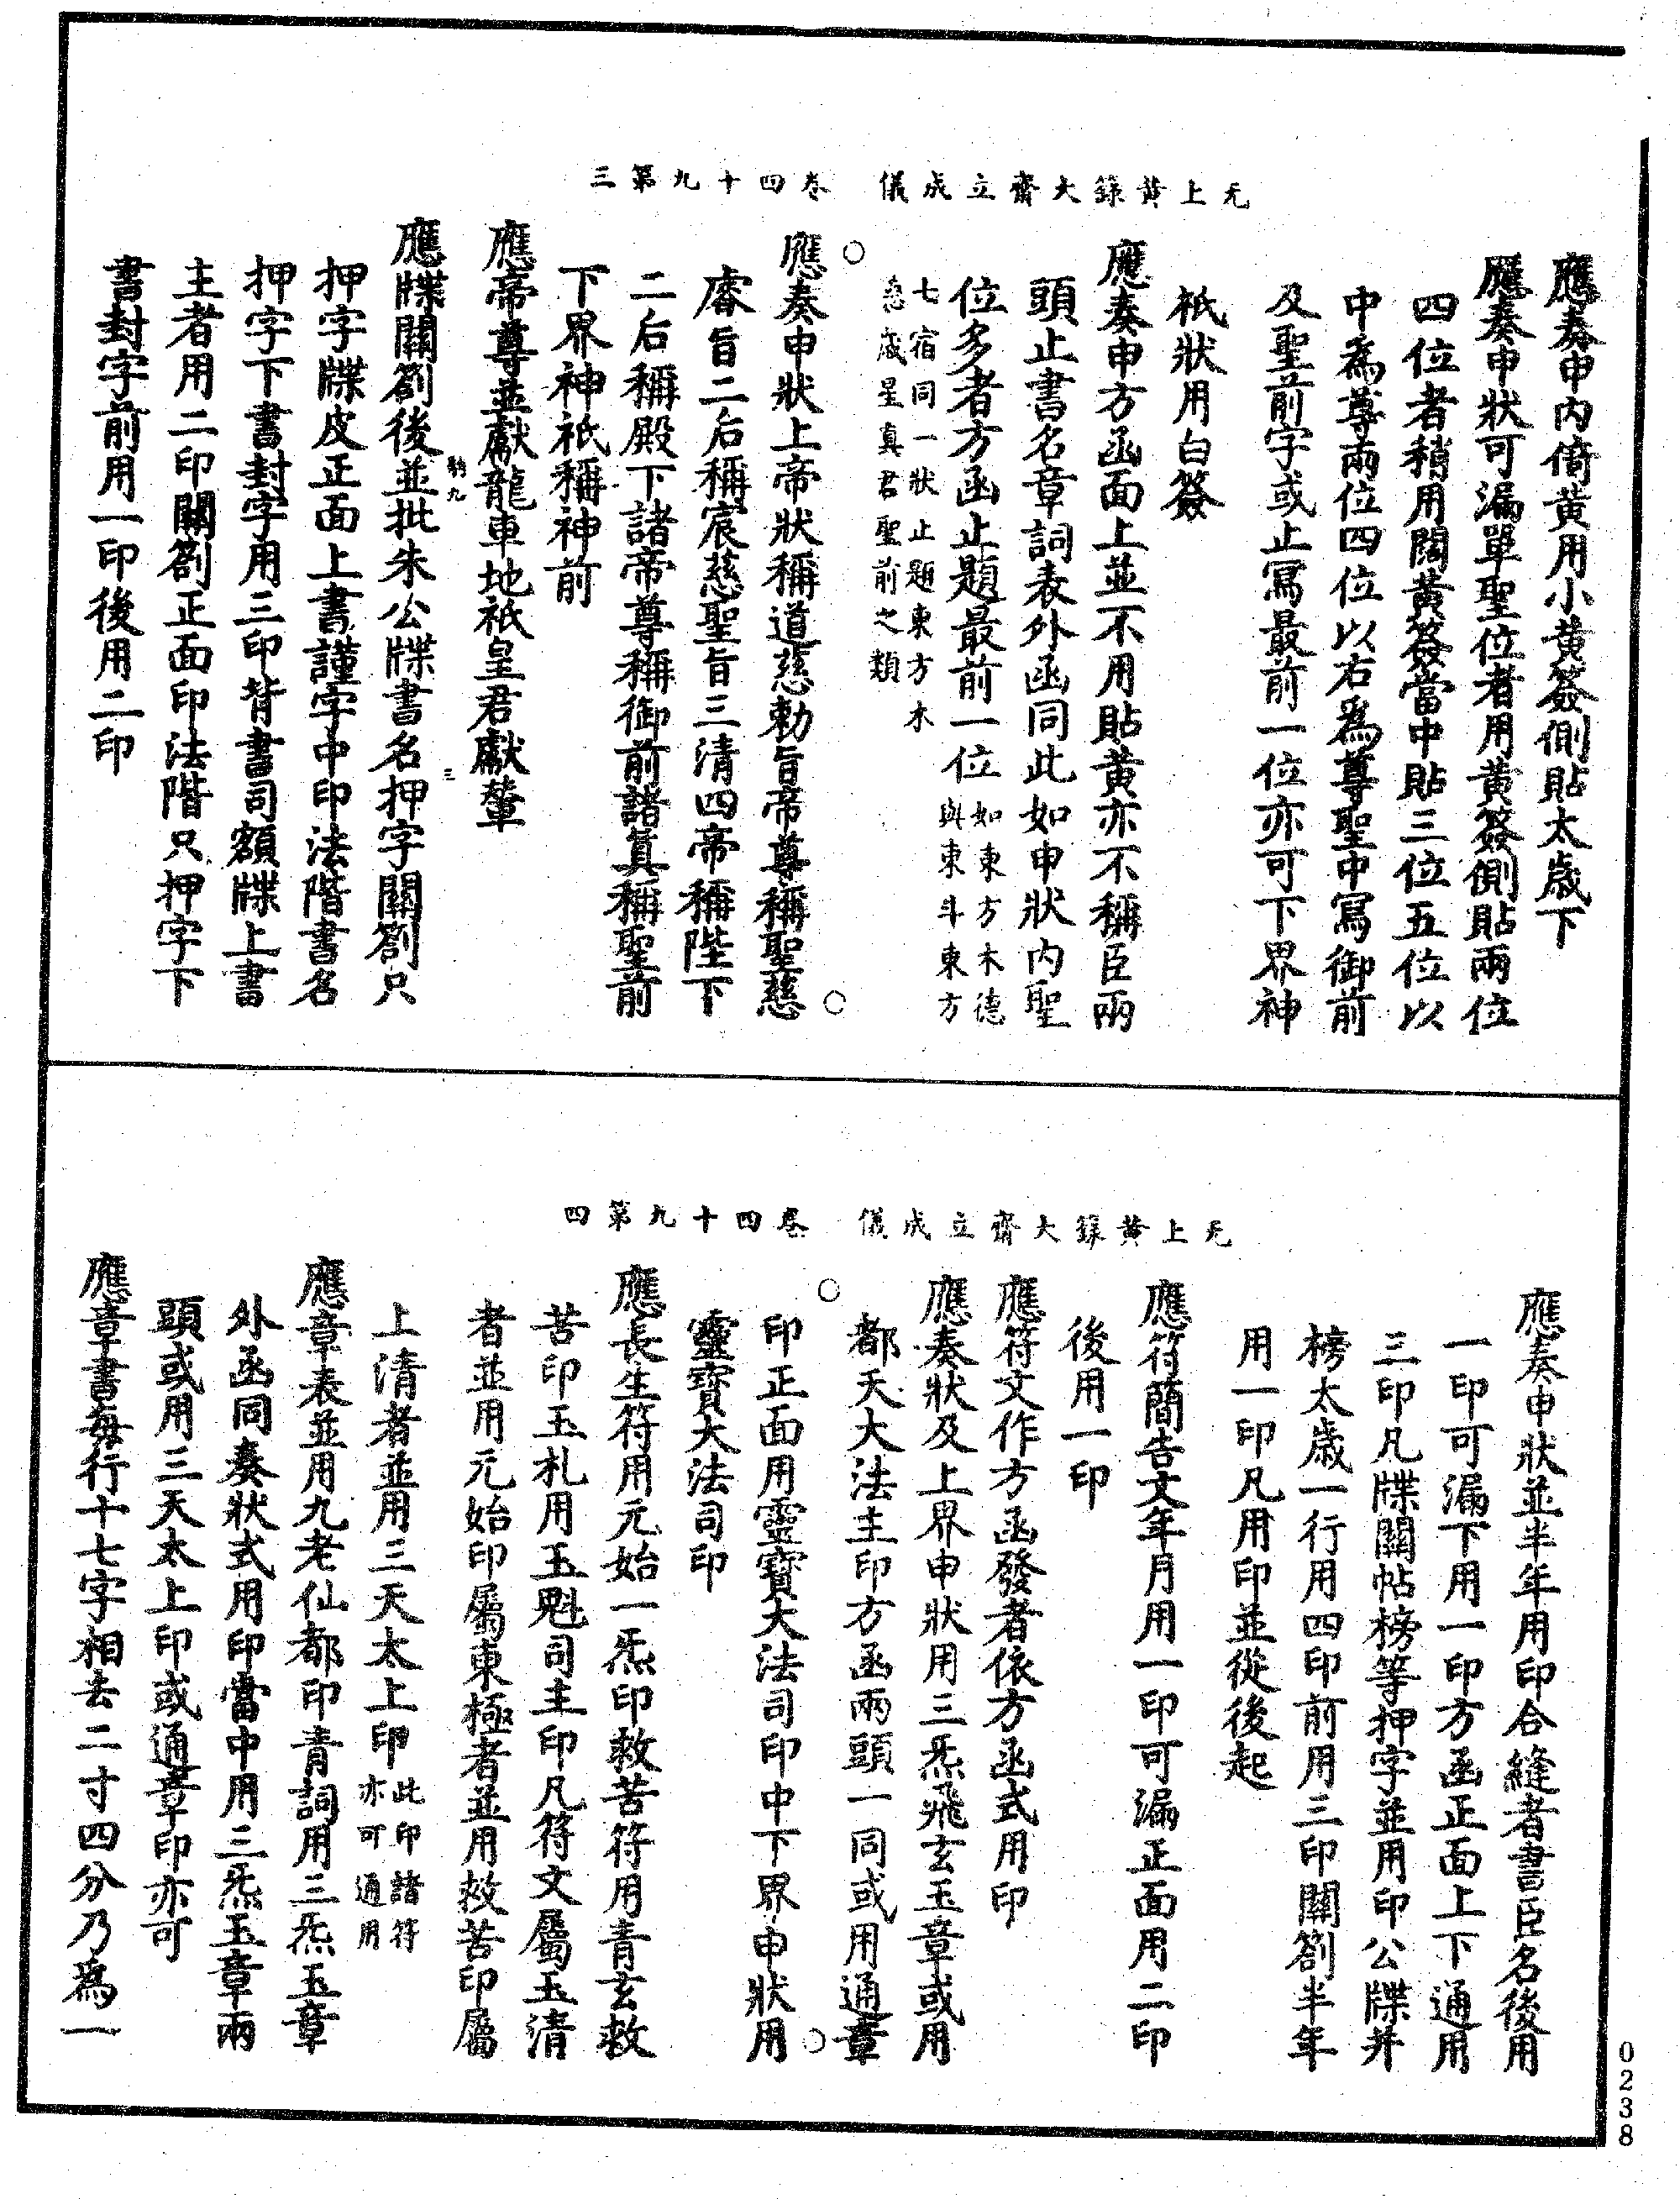 无上黃籙大齋立成儀　卷四十九第三
應奏申內倚黃用小黃簽側貼太歲下
應奏申狀可漏單聖位者用黃簽側貼兩位
四位者稍用闊黃簽當中貼三位五位以
中為尊兩位四位以右為尊聖中寫御前
及聖前字或止寫最前一位亦可下界神
祇狀用白簽
應奏申方函面上並不用貼黃亦不稱臣兩
頭止書名章詞表外函同此如申狀內聖
位多者方函止題最前一位如東方木德
與東斗東方
七宿同一狀止題東方木
德歲星真君聖前之類
應奏申狀上帝狀稱道慈勅旨帝尊稱聖慈
睿旨二后稱宸慈聖旨三清四帝稱陛下
二后稱殿下諸帝尊稱御前諸真稱聖前
下界神祇稱神前
應帝尊並獻龍車地祇皇君獻輦
應牒關劄後並批朱公牒書名押字關劄只
押字牒皮正面上書謹字中印法階書名
押字下書封字用三印背書司額牒上書
主者用二印關劄正面印法階只押字下
書封字前用一印後用二印
无上黃籙大齋立成儀　卷四十九第四
應奏申狀並半年用印合縫者書臣名後用
一印可漏下用一印方函正面上下通用
三印凡牒關帖榜等押字並用印公牒并
榜太歲一行用四印前用三印關劄半年
用一印凡用印並從後起
應符簡告文年月用一印可漏正面用二印
後用一印
應符文作方函發者依方函式用印
應奏狀及上界申狀用三炁飛玄玉章或用
都天大法主印方函兩頭一同或用通章
印正面用靈寶大法司印中下界申狀用
靈寶大法司印
應長生符用元始一炁印救苦符用青玄救
苦印玉札用玉魁司主印凡符文屬玉清
者並用元始印屬東極者並用救苦印屬
上清者並用三天太上印此印諸符
亦可通用
應章表並用九老仙都印青詞用三炁玉章
外函同奏狀式用印當中用三炁玉章兩
頭或用三天太上印或通章印亦可
應章書每行十七字相去二寸四分乃為一
0238